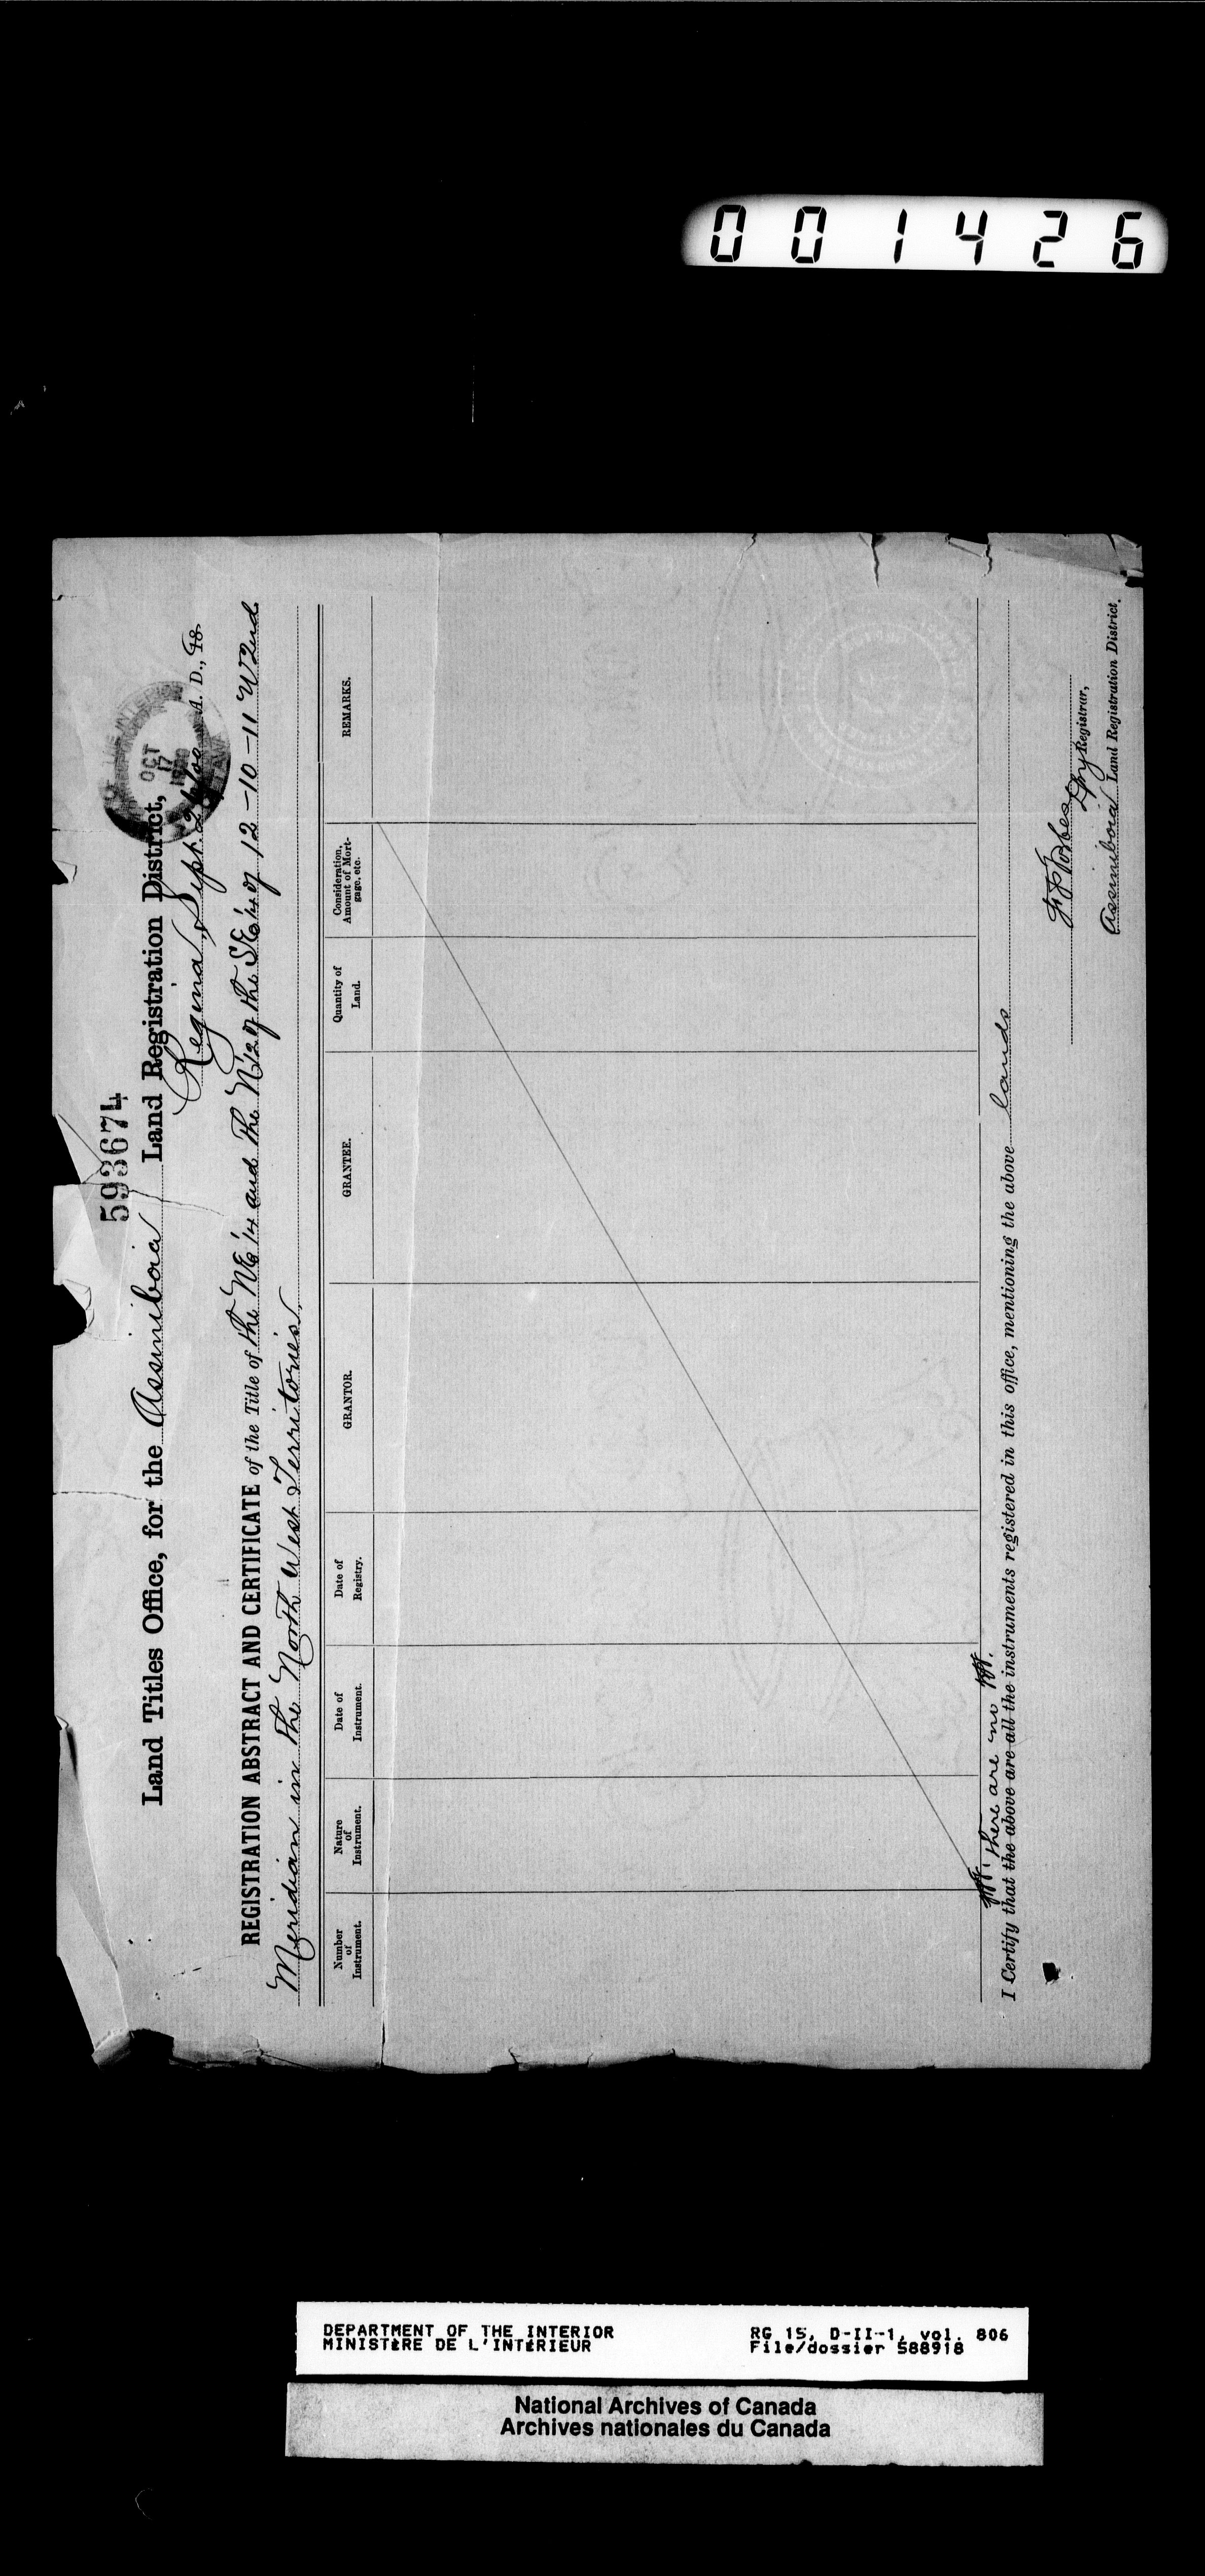 001426
593674
Land Titles Office, for the Assiniboia Land Registration District,
OCT
17
1900
Regina, Sept. A. D., 18
REGISTRATION ABSTRACT AND CERTIFICATE of the Title of the NE 1/4 and the N 1/2 of the SE 1/4 of 12-10-11 W 2nd
Meridian in the North West Territories
Number of Instrument.
Nature of Instrument.
Date of Instrument.
Date of Registry.
GRANTOR.
GRANTEE.
Quantity of Land.
Consideration, Amount of Mortgage, etc.
REMARKS.
there are no
I Certify that the above are all the instruments registered in this office, mentioning the above lands
Forbes
Dpy Registrar,
Assiniboia Land Registration District.
DEPARTMENT OF THE INTERIOR
MINISTÈRE DE L'INTÉRIEUR
RG 15, D-II-1, vol. 806
File/dossier 588918
National Archives of Canada
Archives nationales du Canada